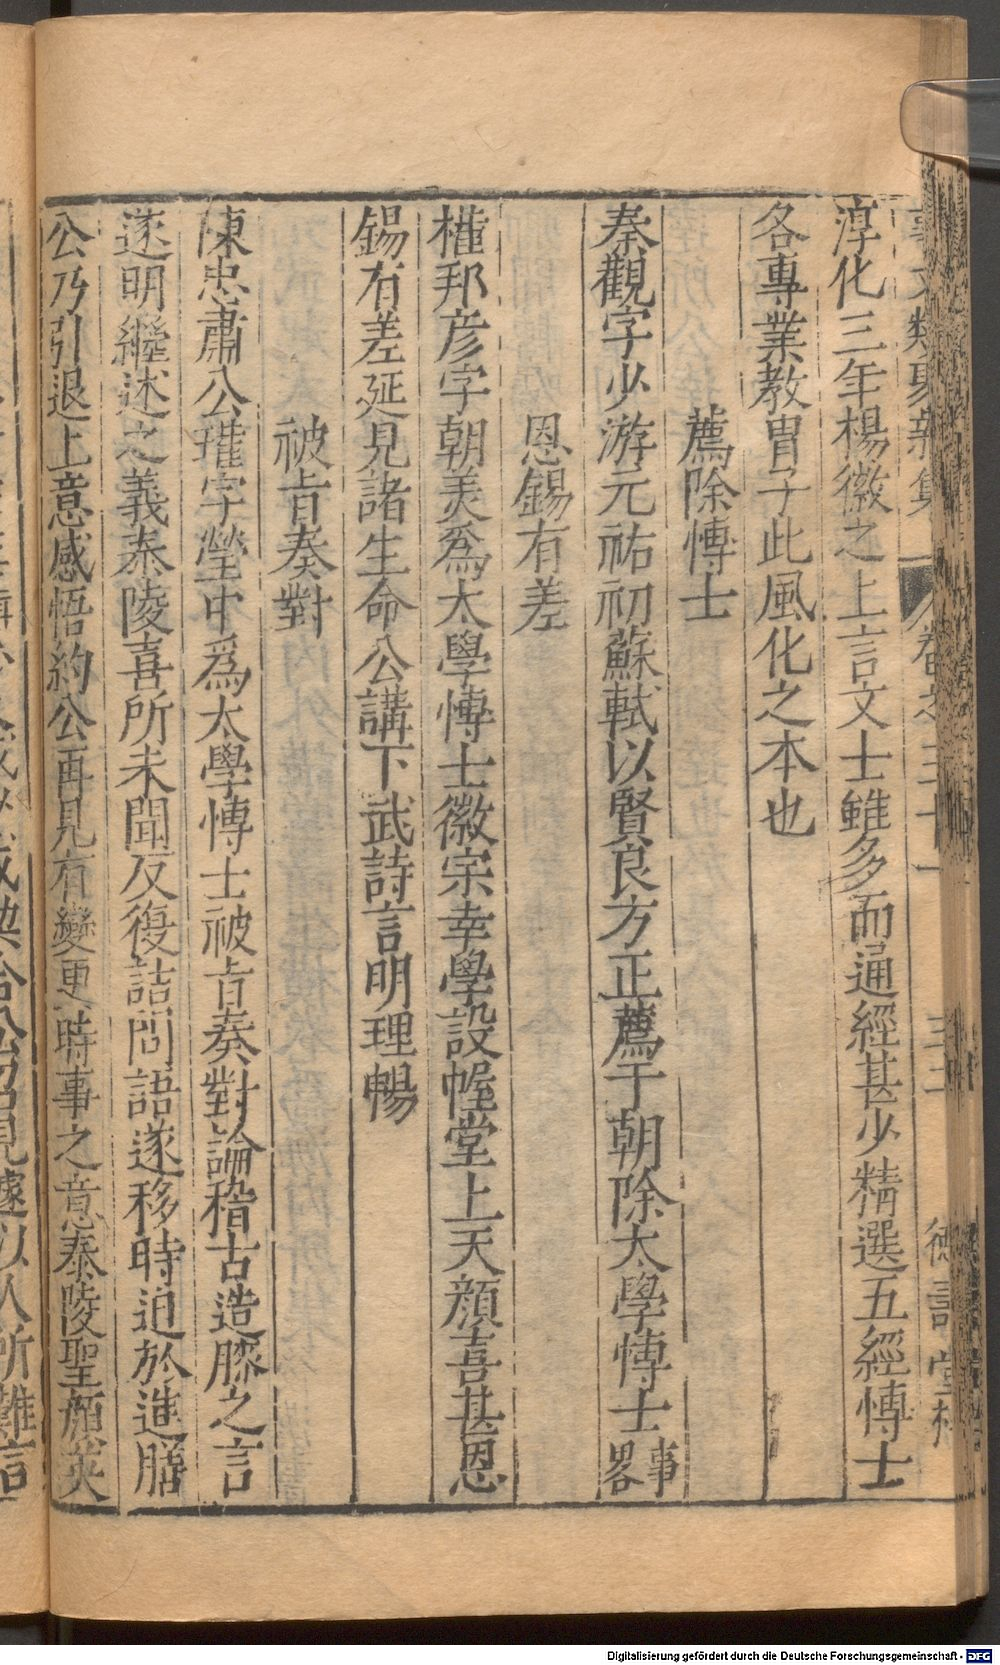 事文類聚新集 卷之三十一 三三 德壽堂梓
淳化三年楊徽之上言文士雖多而通經甚少精選五經愽士
各專業教胄子此風化之本也
薦除愽士
秦觀字少游元祐初蘇軾以賢良方正薦于朝除太學愽士事畧
恩錫有差
權邦彦字朝美爲太學愽士徽宗幸學設幄堂上天顔喜甚恩
錫有差延見諸生命公講下武詩言明理暢
被旨奏對
陳忠肅公瓘字瑩中爲太學愽士被旨奏對論稽古造膝之言
遂明繼述之義泰陵喜所未聞反復詰問語遂移時迫於進膳
公乃引退上意感悟約公再見有變更時事之意泰陵聖顔英
Digitalisierung gefördert durch die Deutsche Forschungsgemeinschaft - DFG